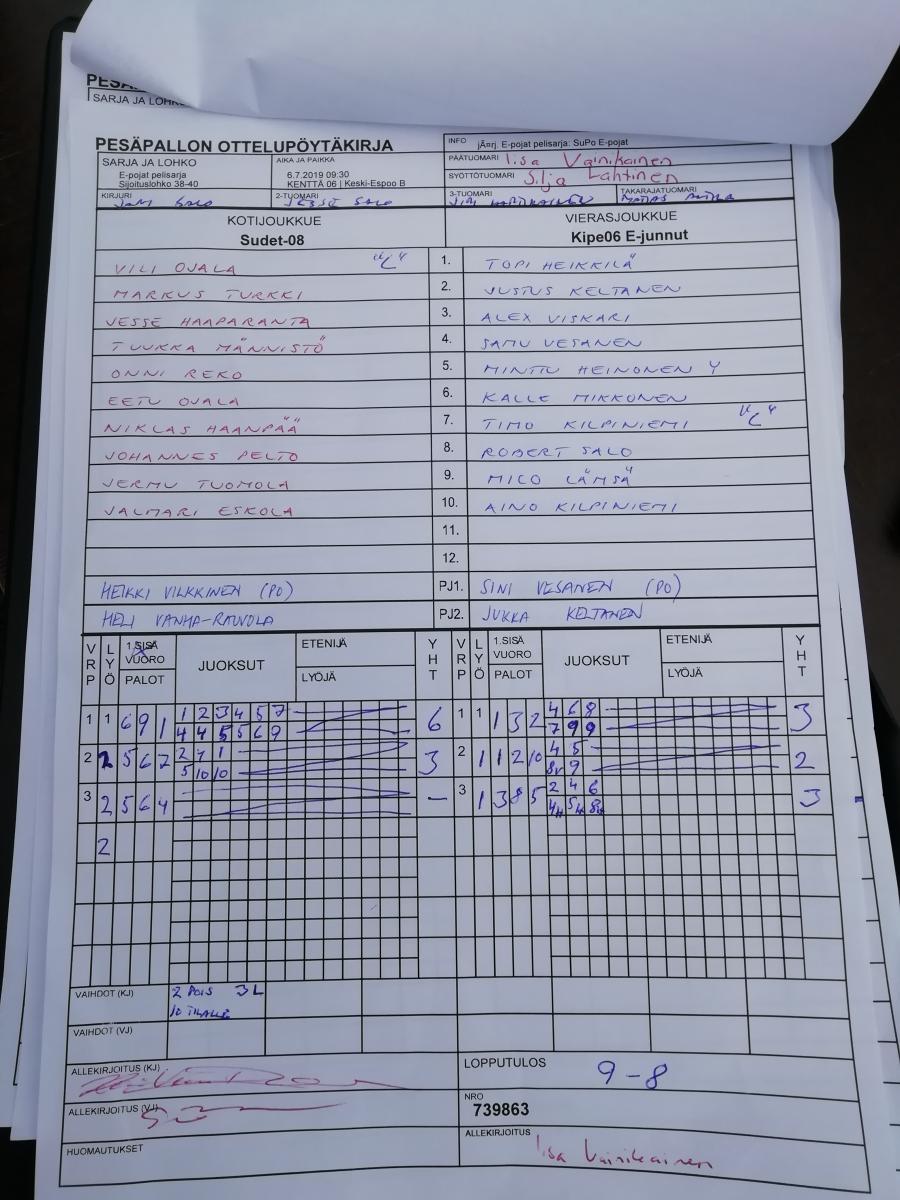 PESÄ
SARJA JA LOHK
PESÄPALLON OTTELUPÖYTÄKIRJA
INFO jÃ¤rj. E-pojat pelisarja: SuPo E-pojat
PÄÄTUOMARI Iisa Vainikainen
SYÖTTÖTUOMARI Silja Lahtinen
SARJA JA LOHKO
E-pojat pelisarja
Sijoituslohko 38-40
AIKA JA PAIKKA
6.7.2019 09:30
KENTTÄ 06 | Keski-Espoo B
KIRJURI SALO
2-TUOMARI JESSE SALO
3-TUOMARI
TAKARAJATUOMARI
KOTIJOUKKUE
Sudet-08
VIERASJOUKKUE
Kipe06 E-junnut
VILI OJALA "C" 1. TOPI HEIKKILÄ
MARKUS TURKKI 2. JUSTUS KELTANEN
JESSE HAAPARANTA 3. ALEX VISKARI
TUUKKA MÄNNISTÖ 4. SAMU VESANEN
ONNI REKO 5. MINTTU HEINONEN Y
EETU OJALA 6. KALLE MIKKONEN
NIKLAS HAANPÄÄ 7. TIMO KILPINIEMI "C"
JOHANNES PELTO 8. ROBERT SALO
JERMU TUOMOLA 9. MICO LÄMSÄ
VALMARI ESKOLA 10. AINO KILPINIEMI
11.
12.
HEIKKI VILKKINEN (PO) PJ1. SINI VESANEN (PO)
HELI VANHA-RAUVOLA PJ2. JUKKA KELTANEN
VRP LYÖ 1.SISÄ VUORO PALOT JUOKSUT ETENIJÄ LYÖJÄ YHT VRP LYÖ 1.SISÄ VUORO PALOT JUOKSUT ETENIJÄ LYÖJÄ YHT
1 1 6 9 1 1 2 3 4 5 7 6 1 1 1 3 2 4 6 8 3
4 4 5 5 6 9 7 9 9
2 2 5 6 7 2 7 1 3 2 1 1 2 10 4 5 2
5 10 10 8v 9
3 2 5 6 4 – 3 1 3 8 5 2 4 6 3
2
VAIHDOT (KJ) 2 POIS 3L
10 TILALLE
VAIHDOT (VJ)
ALLEKIRJOITUS (KJ)
LOPPUTULOS 9-8
ALLEKIRJOITUS (VJ)
NRO
739863
HUOMAUTUKSET
ALLEKIRJOITUS
Iisa Vainikainen